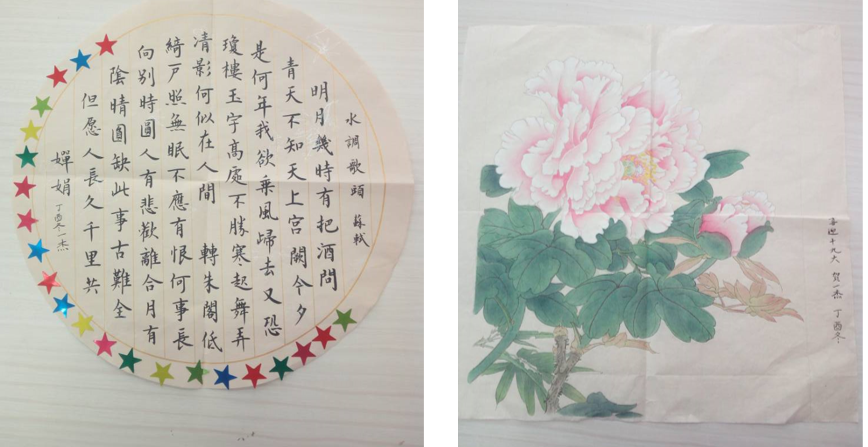 水調歌頭 蘇軾
明月幾時有把酒問
青天不知天上宮闕今夕
是何年我欲乘風歸去又恐
瓊樓玉宇高處不勝寒起舞弄
清影何似在人間 轉朱閣低
綺戶照無眠不應有恨何事長
向別時圓人有悲歡離合月有
陰晴圓缺此事古難全
但愿人長久千里共
嬋娟 丁酉冬一杰
喜迎十九大 贺一杰 丁酉冬